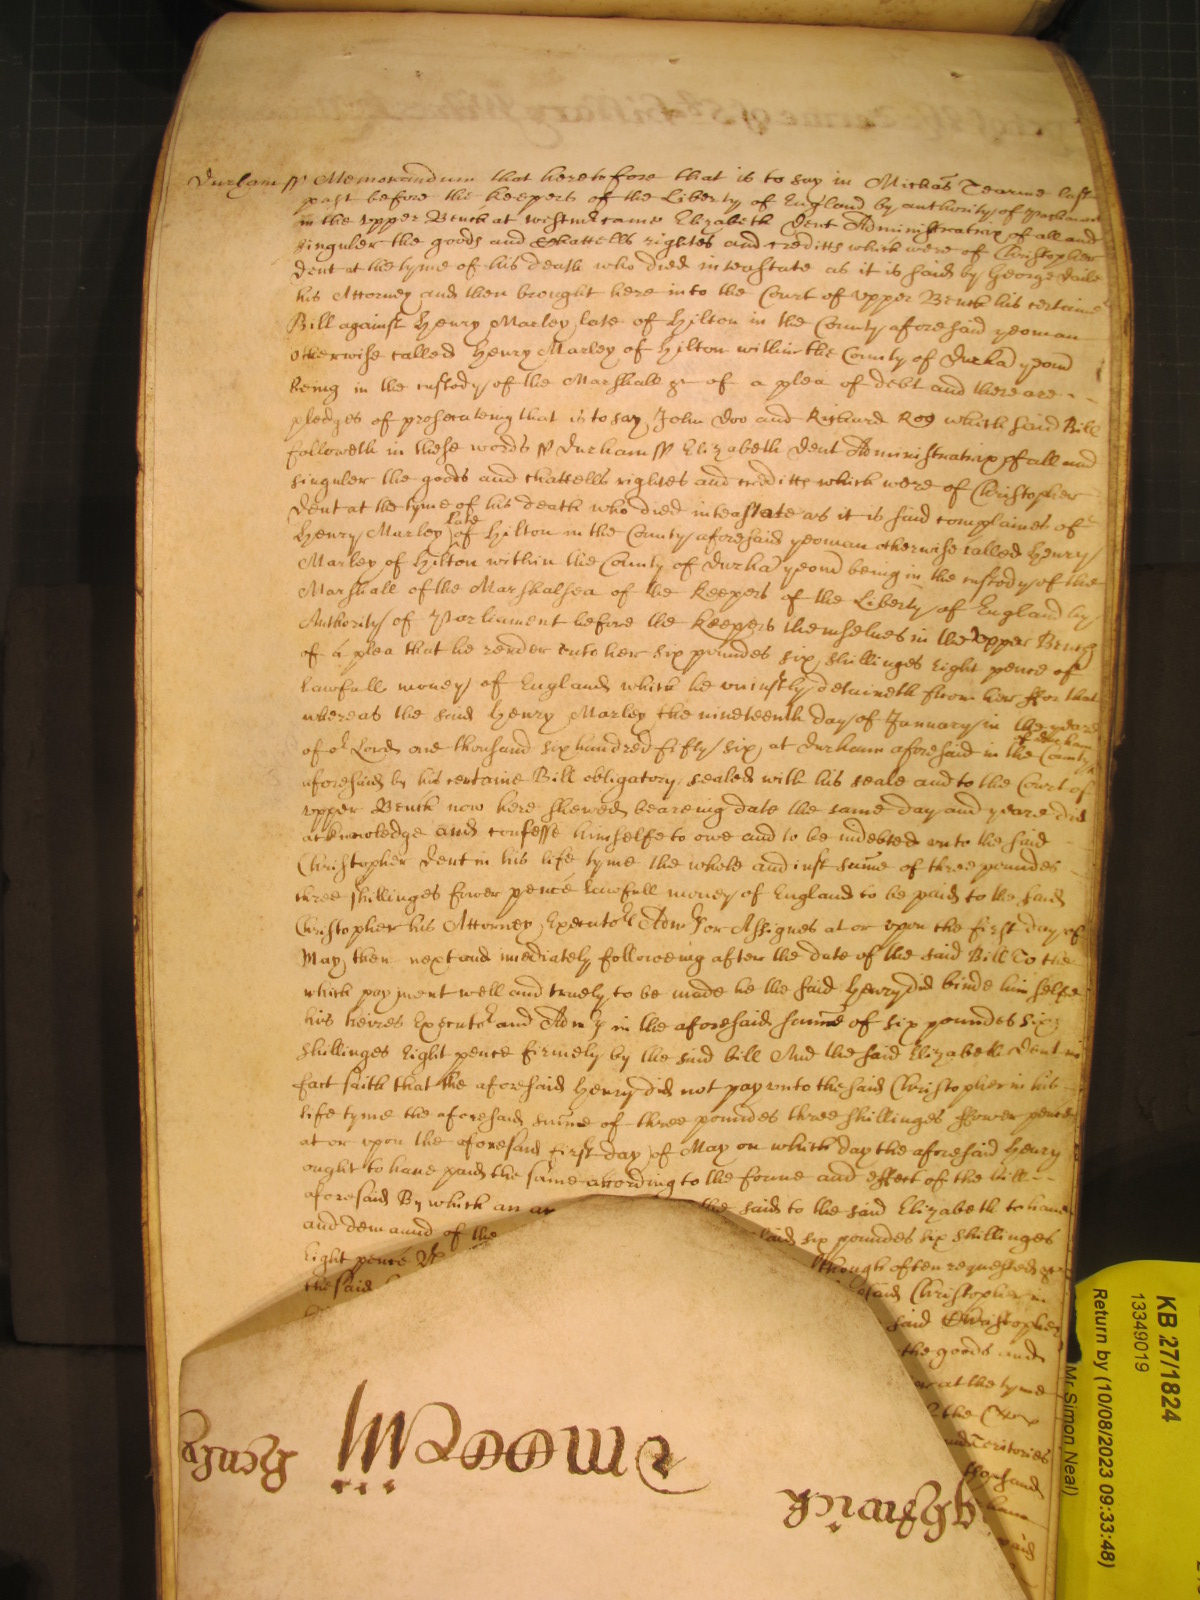 Durham ss Memorandum that heretofore that is to say in Michas Tearme last
past before the Keepers of the Liberty of England by authority of
in the Upper Bench at Westmr came Elizabeth Dent Administratrix of all and
singuler the goods and chattells rightes and creditts which were of Christopher
Dent at the tyme of his death who died inteastate as it is said by George
his Attorney and then brought here into the Court of Upper Bench his certaine
Bill against Henry Marley late of Hilton in the County aforesaid yeoman
otherwise called Henry Marley of Hilton within the County of Durha yeom
being in the custody of the Marshall &c of a plea of debt and there are
pledges of prosecuteing that is to say John Doo and Richard Roo which said Bill
followeth in these words ss Durham ss Elizabeth Dent Administratrix of all and
singuler the goods and chattells rightes and creditts which were of Christopher
Dent at the tyme of his death who died inteastate as it is said complaines of
Henry Marley late of Hilton in the County aforesaid yeoman otherwise called Henry
Marley of Hilton within the County of Durha yeom being in the custody of the
Marshall of the Marshalsea of the Keepers of the Liberty of England by
Authority of Parliament before the Keepers themselves in the Upper Bench
of a plea that he render unto her six poundes six shillinges eight pence of
lawfull money of England which he uniustly detaineth from her ffor that
whereas the said Henry Marley the nineteenth day of January in the yeare
of or Lord one thousand six hundred fifty six at Durham aforesaid in the County
aforesaid by his certaine Bill obligatory sealed with his seale and to the Court of
Upper Bench now here shewed beareing date the same day and yeare did
acknowledge and confesse himselfe to owe and to be indebted unto the said
Christopher Dent in his life tyme the whole and iust sume of three poundes
three shillinges fower pence lawfull money of England to be paid to the said
Christopher his Attorney Executors Admrs or Assignes at or upon the first day of
May then next and imediately following after the date of the said Bill To the
which payment well and truely to be made he the said Henry did binde him selfe
his heires Executors and Admrs in the aforesaid sume of six poundes six
shillinges Eight pence firmely by the said bill And the said Elizabeth Dent in
fact saith that the aforesaid Henry did not pay unto the said Christopher in his
life tyme the aforesaid sume of three poundes three shillinges ffower pence
at or upon the aforesaid first day of May on which day the aforesaid Henry
ought to have paid the same according to the forme and effect of the bill
aforesaid By which an the said to the said Elizabeth to have
and demaund of the said six poundes six shillinges
Eight pence although often requested &c
the said said Christopher in
said Christopher
the goods and
at the tyme
the
and Teritories
thousand
have
paid
KB 27/1824
13349019
Return by (10/08/2023 09:33:48)
Mr Simon Neal)